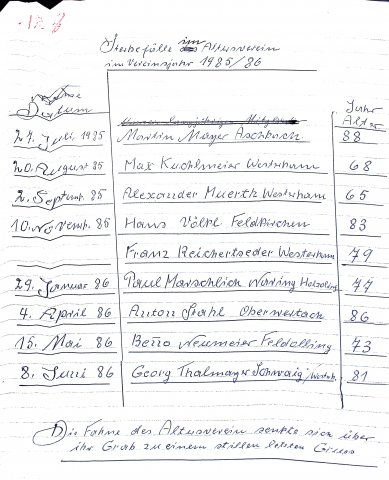 Sterbefälle im Altusverein
im Vereinsjahr 1985/86
Datum
Jahr
Alter
27. Juli, 1985 Martin Mayer Aschbach 88
20. August 85 Max Kuchlmeier Westerham 68
2. Septemb. 85 Alexander Muerth Westerham 65
10. November. 85 Hans Völkl Feldkirchen 83
Franz Reichertseder Westerham 79
29. Januar 86 Paul Marschlich 77
4. April 86 Anton Stahl 86
15. Mai 86 Beno Neumeier Feldolling 73
8. Juni 86 Georg Thalmayer Schwaig/Westerh. 81
Die Fahne des Altusverein senkte sich über
ihr Grab zu einem stillen letzten Gruss